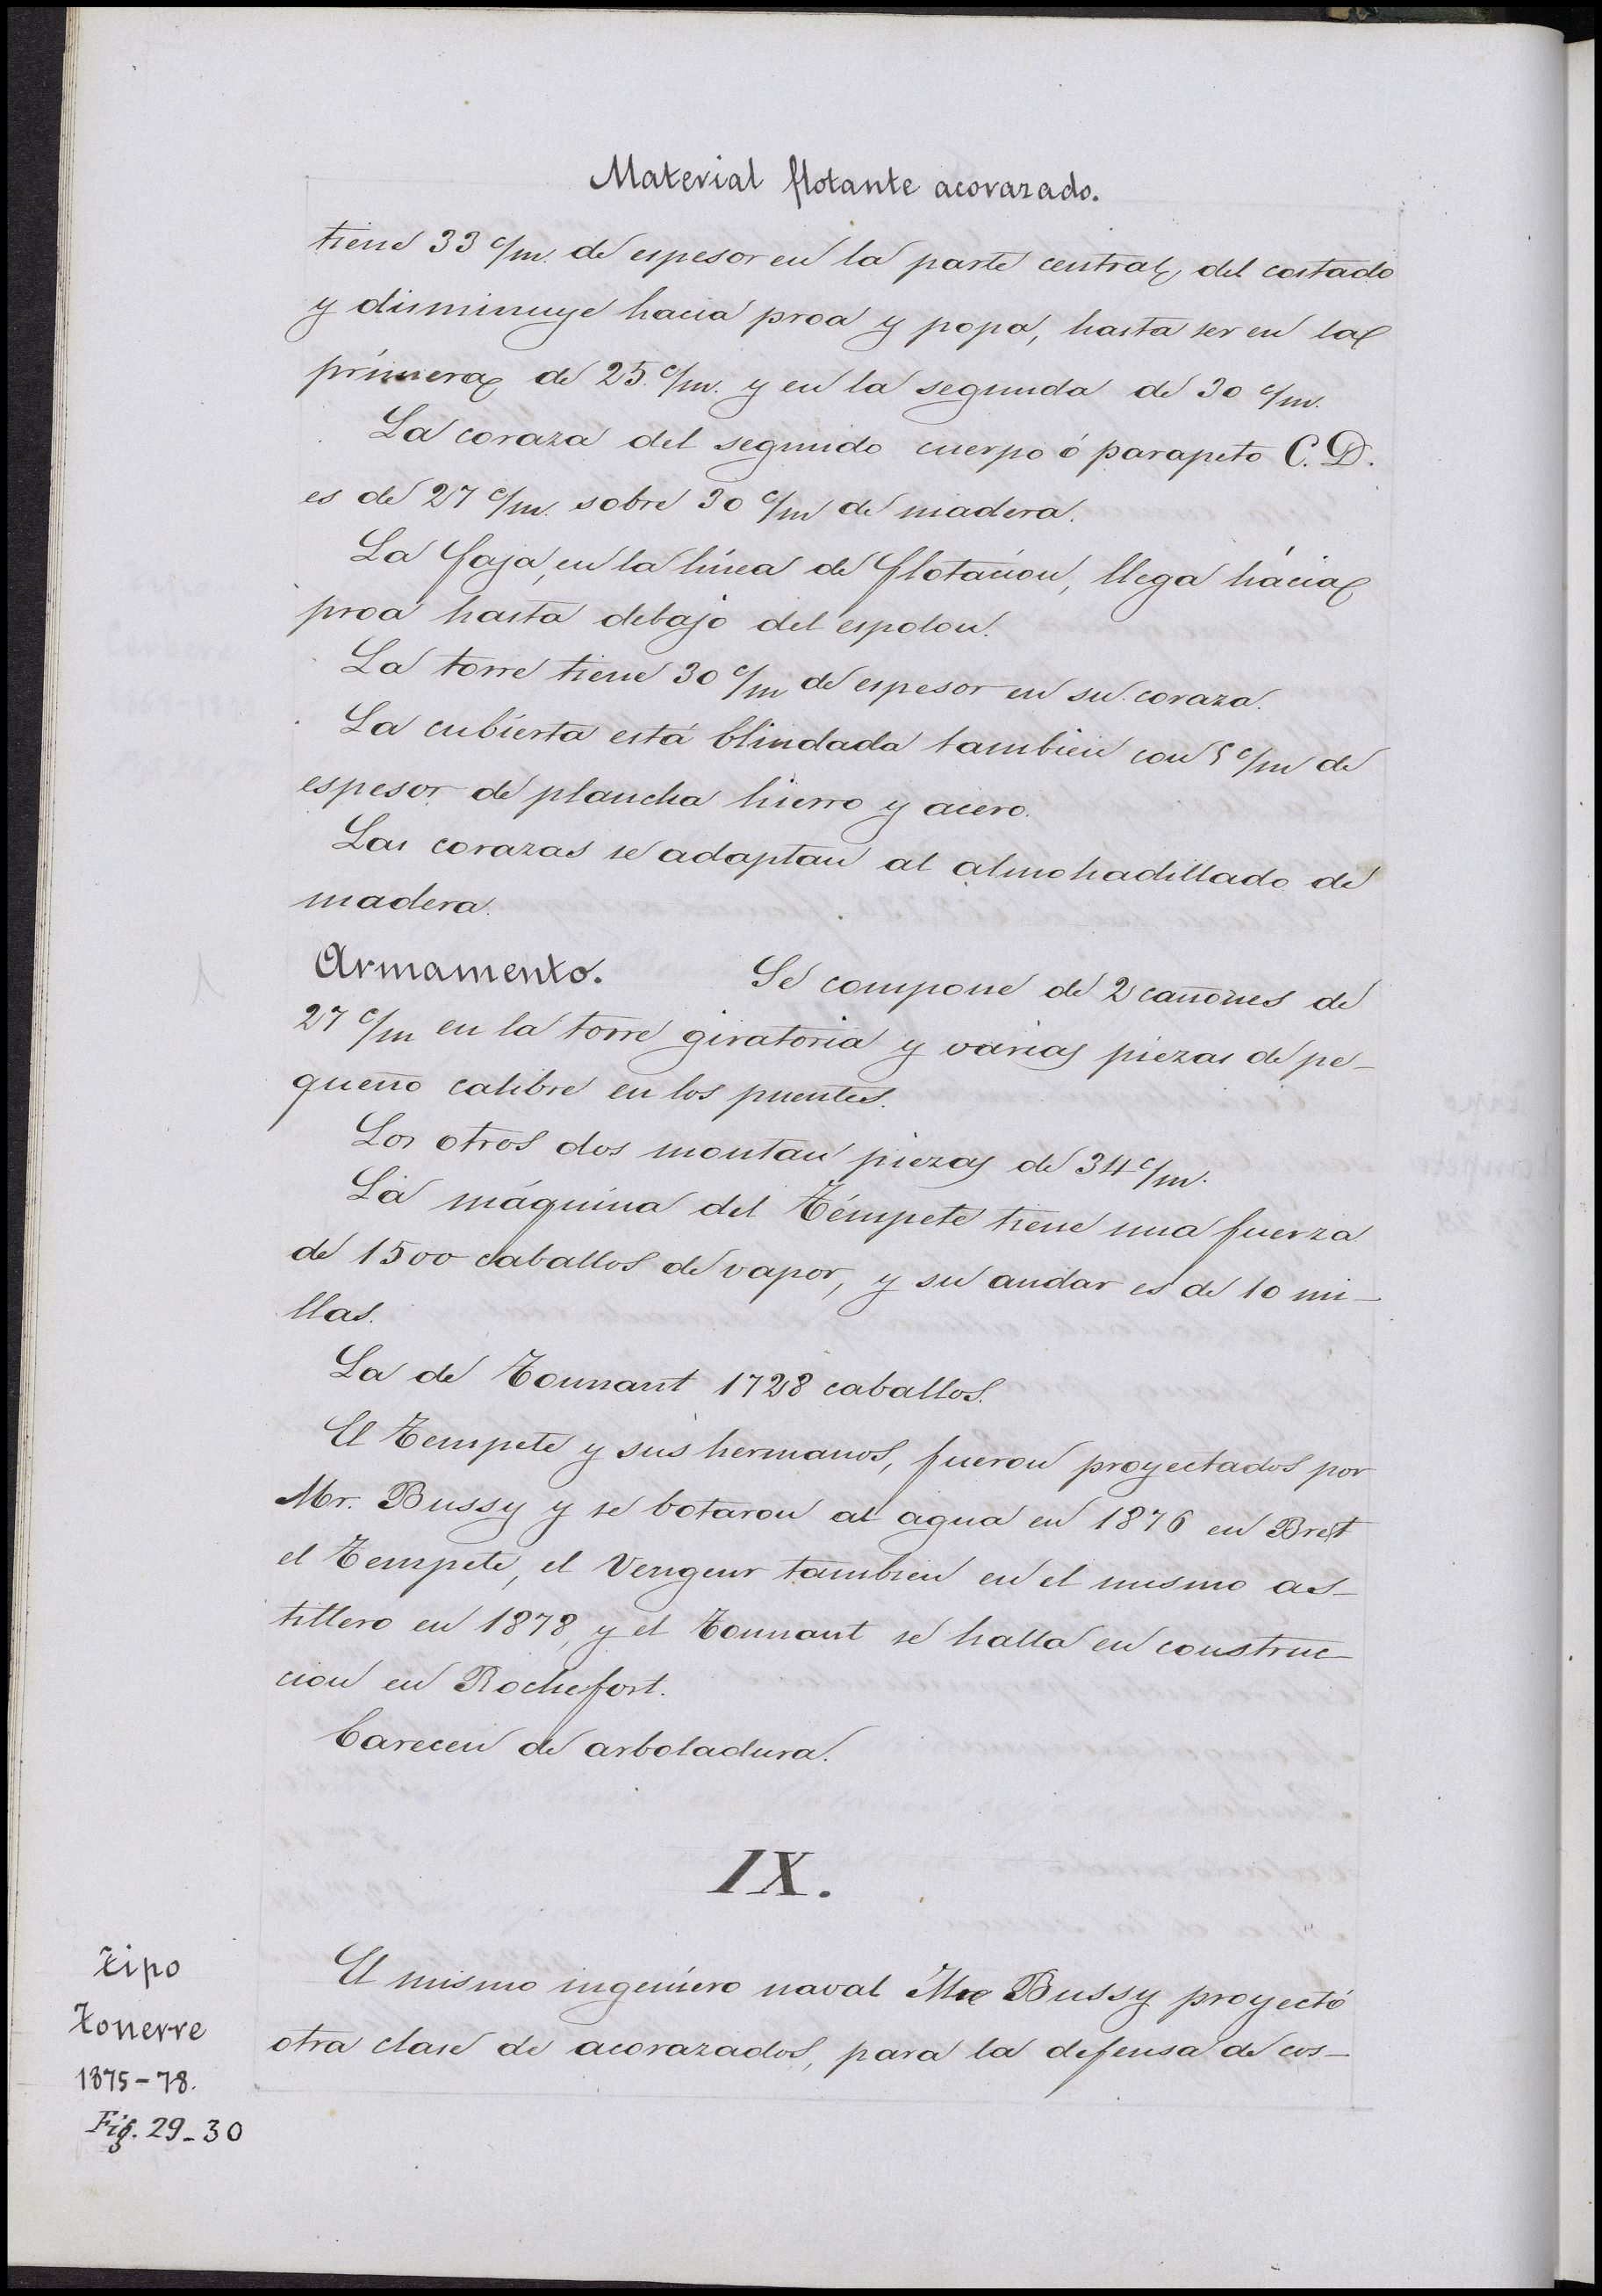 Material flotante acorazado.
tiene 33 c/m. de espesor en la parte central, del costado
y disminuye hacia proa y popa, hasta ser en la
primera de 25. c/m. y en la segunda de 30 c/m.
La coraza del segundo cuerpo ó parapeto C.D.
es de 27 c/m. sobre 30 c/m de madera.
La faja, en la línea de flotacion, llega hácia
proa hasta debajo del espolon.
La torre tiene 30 c/m de espesor en su coraza.
La cubierta está blindada tambien con 5 c/m de
espesor de plancha hierro y acero.
Las corazas se adaptan al almohadillado de
madera.
Armamento. Se compone de 2 cañones de
27 c/m en la torre giratoria y varias piezas de pe-
queño calibre en los puentes.
Los otros dos montan piezas de 34 c/m.
La máquina del Témpete tiene una fuerza
de 1500 caballos de vapor, y su andar es de 10 mi-
llas.
La de Tonnant 1728 caballos.
El Tempete y sus hermanos, fueron proyectados por
Mr. Bussy y se botaron al agua en 1876 en Brest
el Tempete, el Vengeur tambien en el mismo as-
tillero en 1878, y el Tonnant se halla en construc-
cion en Rochefort.
Carecen de arboladura.
IX.
Tipo
Tonerre
1875-78.
Fig. 29-30
El mismo ingeniero naval Mr Bussy proyectó
otra clase de acorazados, para la defensa de cos-